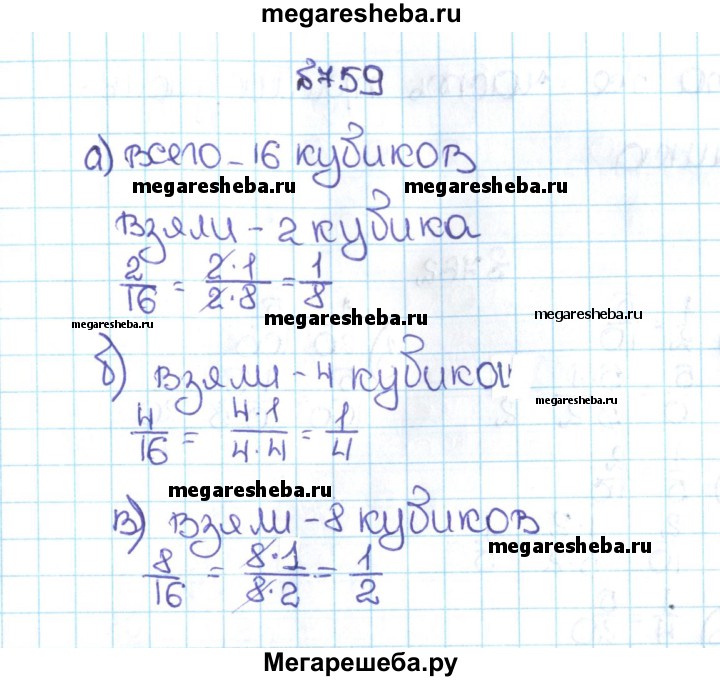 megaresheba.ru
№759
а) всего - 16 кубиков
megaresheba.ru megaresheba.ru
взяли - 2 кубика
2/16 = 2·1/2·8 = 1/8
megaresheba.ru megaresheba.ru megaresheba.ru
б) взяли - 4 кубика
megaresheba.ru
4/16 = 4·1/4·4 = 1/4
megaresheba.ru
в) взяли - 8 кубиков
megaresheba.ru
8/16 = 8·1/8·2 = 1/2
Мегарешеба.ру